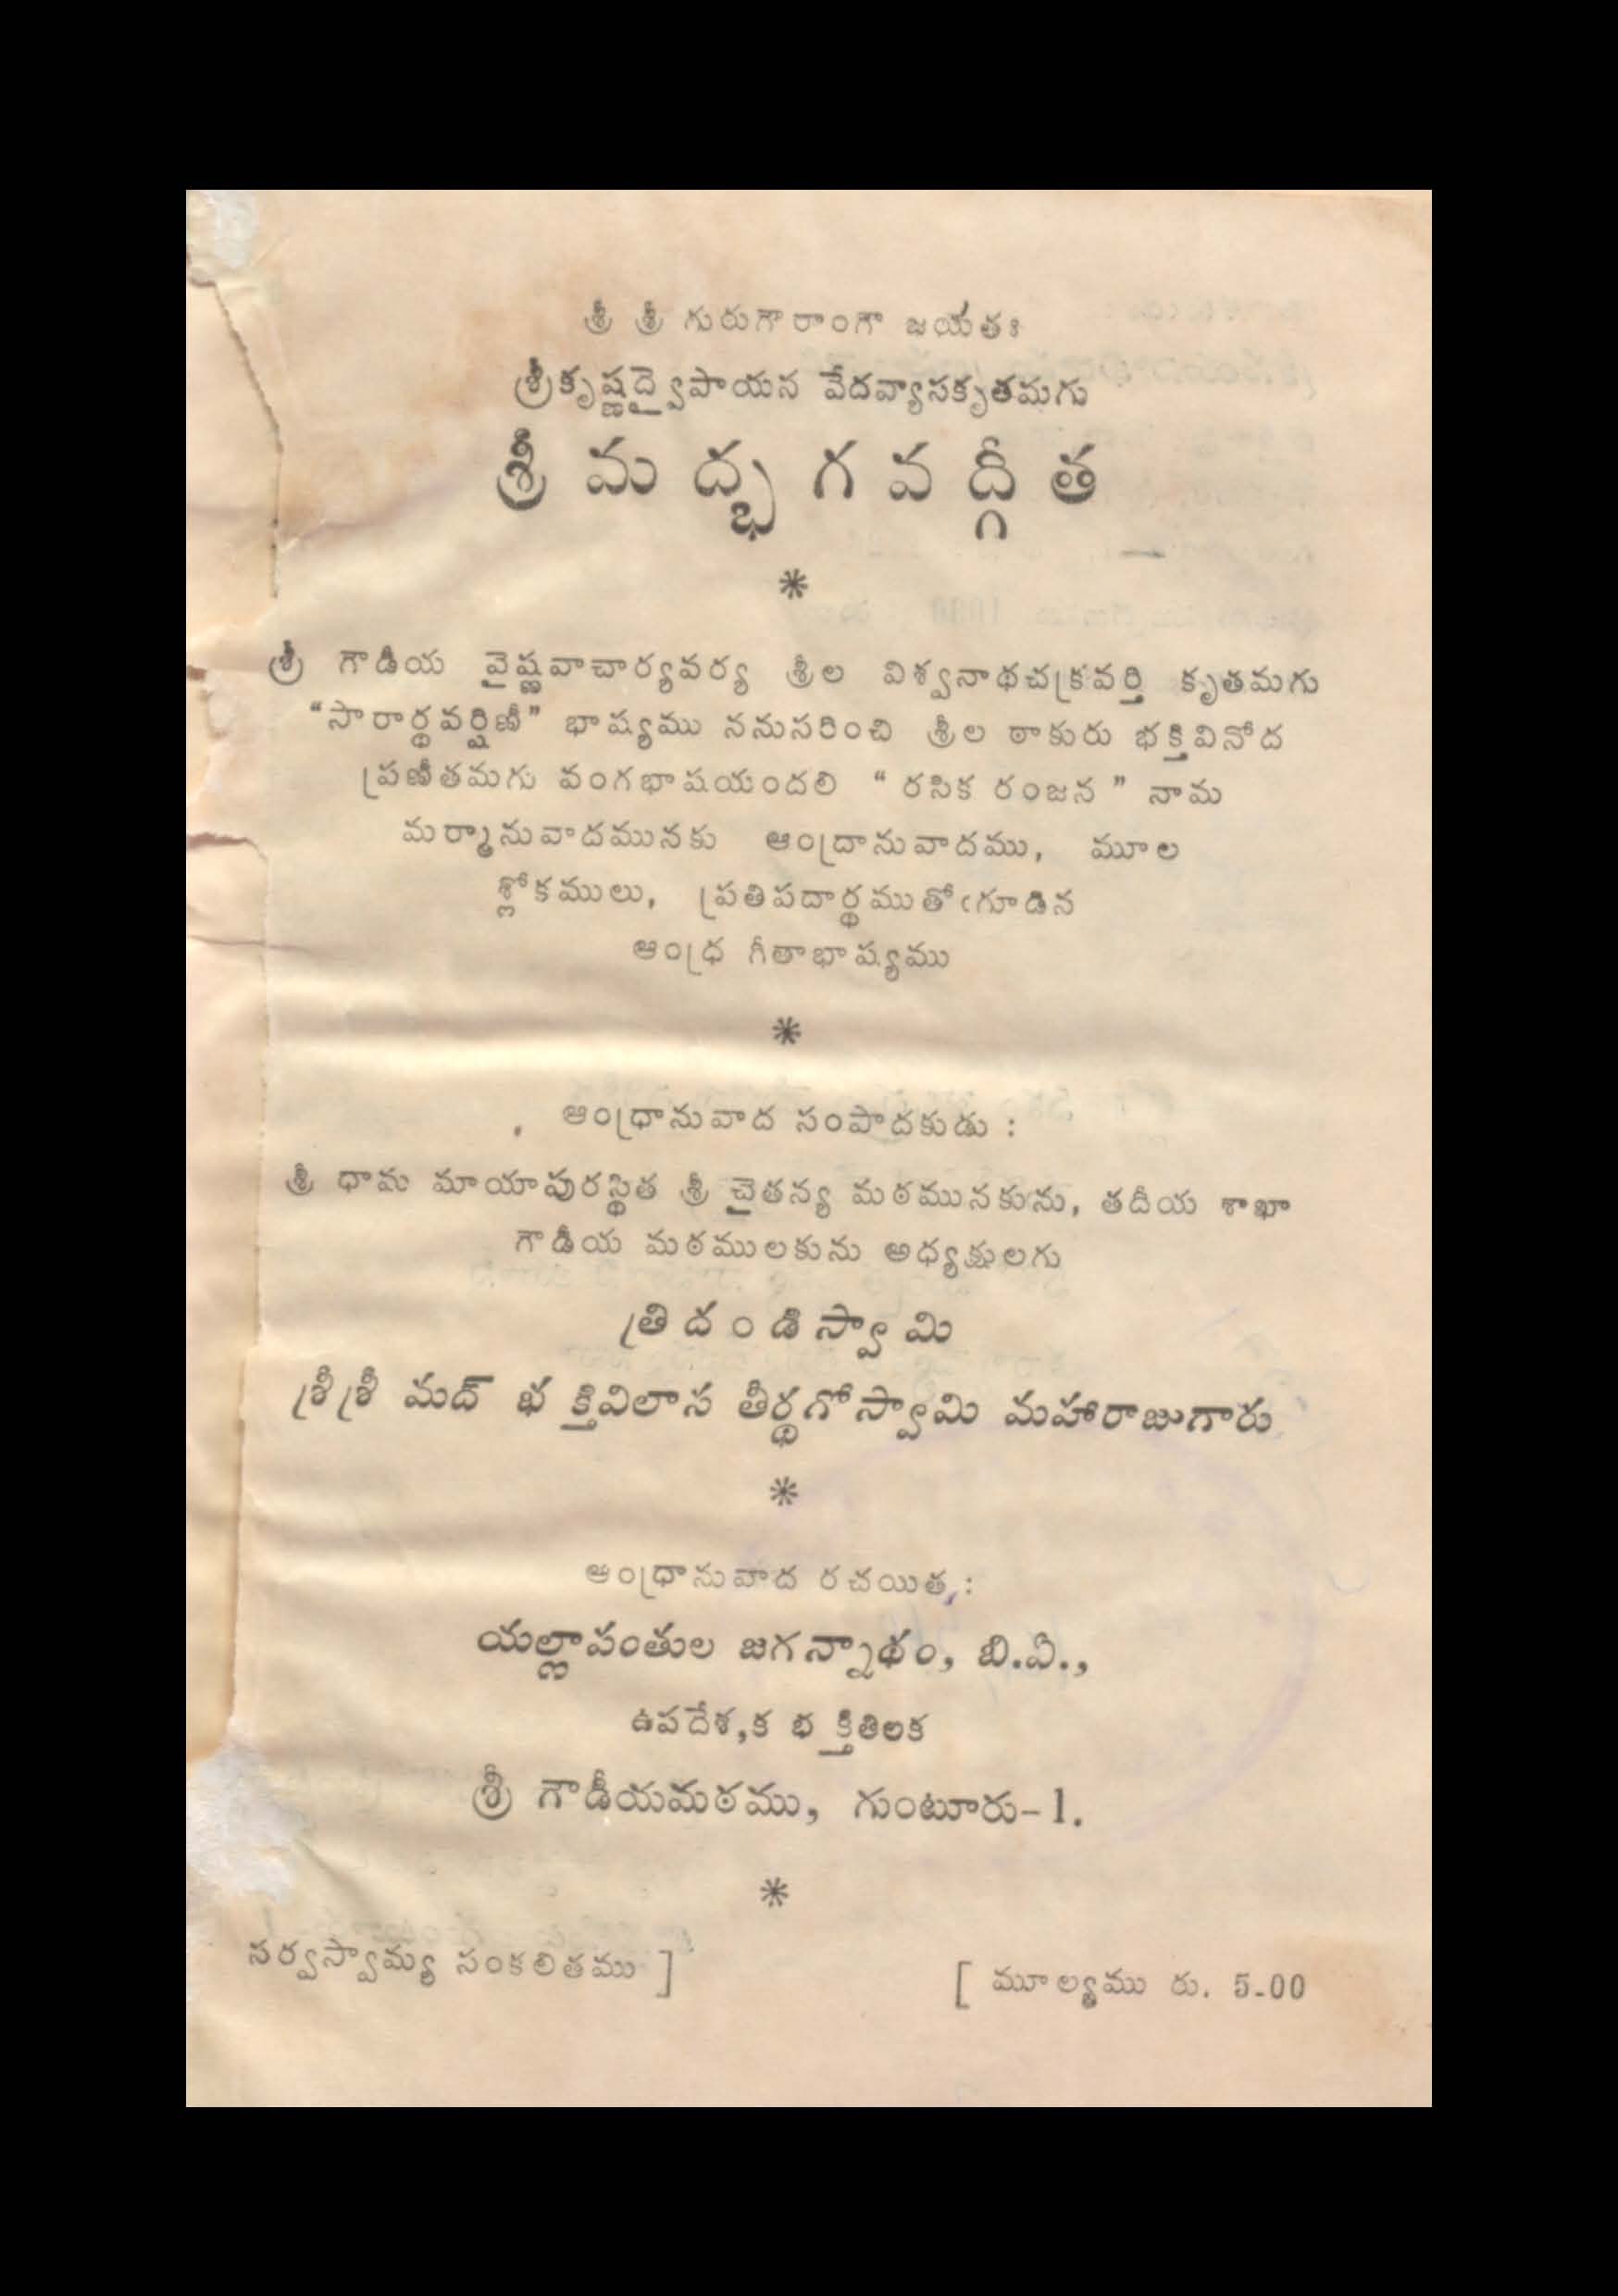 శ్రీ శ్రీ గురుగౌరాంగౌ జయతః
శ్రీకృష్ణద్వైపాయన వేదవ్యాసకృతమగు
శ్రీమద్భగవద్గీత
*
శ్రీ గౌడీయ వైష్ణవాచార్యవర్య శ్రీల విశ్వనాథచక్రవర్తి కృతమగు
“సారార్థవర్షిణీ” భాష్యము ననుసరించి శ్రీల ఠాకురు భక్తివినోద
ప్రణీతమగు వంగభాషయందలి “ రసిక రంజన ” నామ
మర్మానువాదమునకు ఆంద్రానువాదము, మూల
శ్లోకములు, ప్రతిపదార్థముతోఁగూడిన
ఆంధ్ర గీతాభాష్యము
*
ఆంధ్రానువాద సంపాదకుడు :
శ్రీ ధామ మాయాపురస్థిత శ్రీ చైతన్య మఠమునకును, తదీయ శాఖా
గౌడీయ మఠములకును అధ్యక్షులగు
త్రిదండిస్వామి
శ్రీశ్రీ మద్ భక్తివిలాస తీర్థగోస్వామి మహారాజుగారు
*
ఆంధ్రానువాద రచయిత :
యల్లాపంతుల జగన్నాథం, బి.ఏ.,
ఉపదేశ,క భక్తితిలక
శ్రీ గౌడీయమఠము, గుంటూరు-1.
*
సర్వస్వామ్య సంకలితము ]
[ మూల్యము రు. 5-00